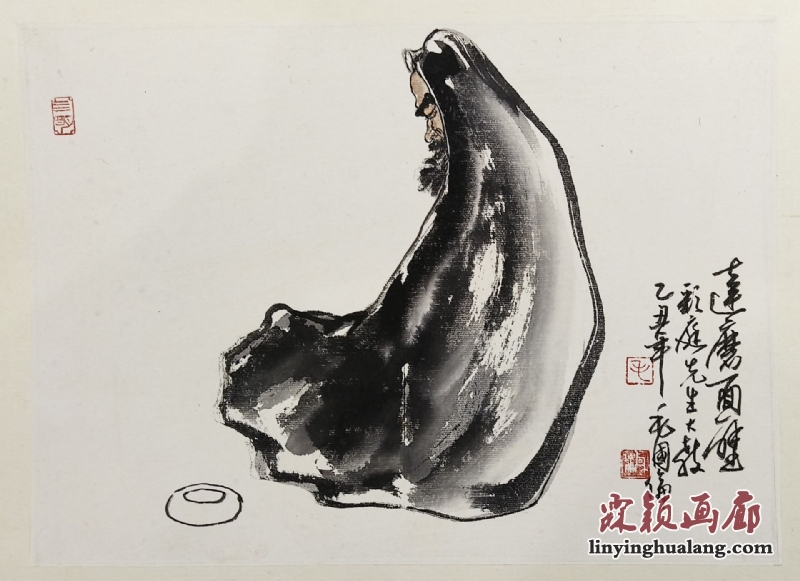 達磨面壁
庭先生大教
乙丑年 毛國倫
霖颖画廊
linyinghualang.com